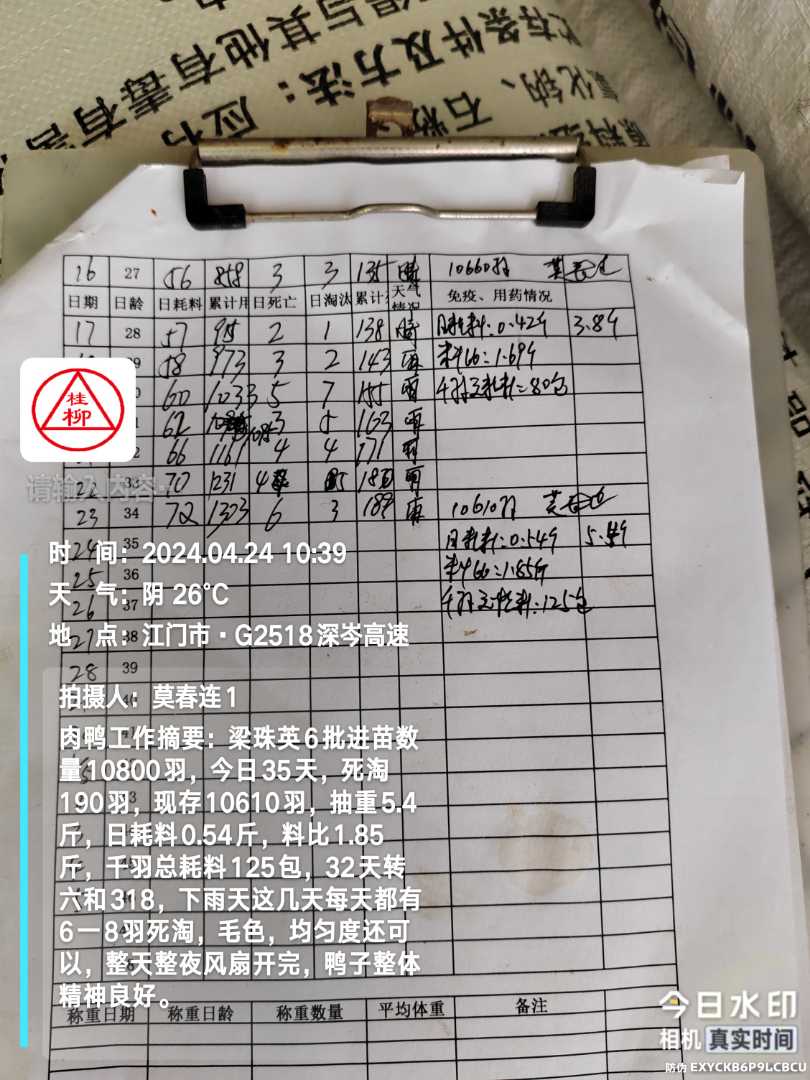 得与其他有毒有害
贮存条件及方法：应
氯化钠、石粉
16 27 56 858 3 3 135 晴 10660羽 莫春连
日期 日龄 日耗料 累计用 日死亡 日淘汰 累计 天气情况 免疫、用药情况
17 28 57 915 2 1 138 晴 日耗料:0.42斤 3.8斤
58 973 3 2 143 料比:1.69斤
60 1033 5 7 155 千羽总耗料:80包
62 1095 3 5 163
66 1161 4 4 171
22 33 70 1231 4
23 34 72 1323 6 3 189 10610羽 莫春连
24 35 日耗料:0.54斤 5.4斤
25 36 料比:1.85斤
26 37 千羽总耗料:125包
27 38
28 39
桂柳
请输入内容
时 间：2024.04.24 10:39
天 气：阴 26℃
地 点：江门市·G2518深岑高速
拍摄人：莫春连1
肉鸭工作摘要：梁珠英6批进苗数
量10800羽，今日35天，死淘
190羽，现存10610羽，抽重5.4
斤，日耗料0.54斤，料比1.85
斤，千羽总耗料125包，32天转
六和318，下雨天这几天每天都有
6一8羽死淘，毛色，均匀度还可
以，整天整夜风扇开完，鸭子整体
精神良好。
称重日期 称重日龄 称重数量 平均体重 备注
今日水印
相机 真实时间
防伪 EXYCKB6P9LCBCU